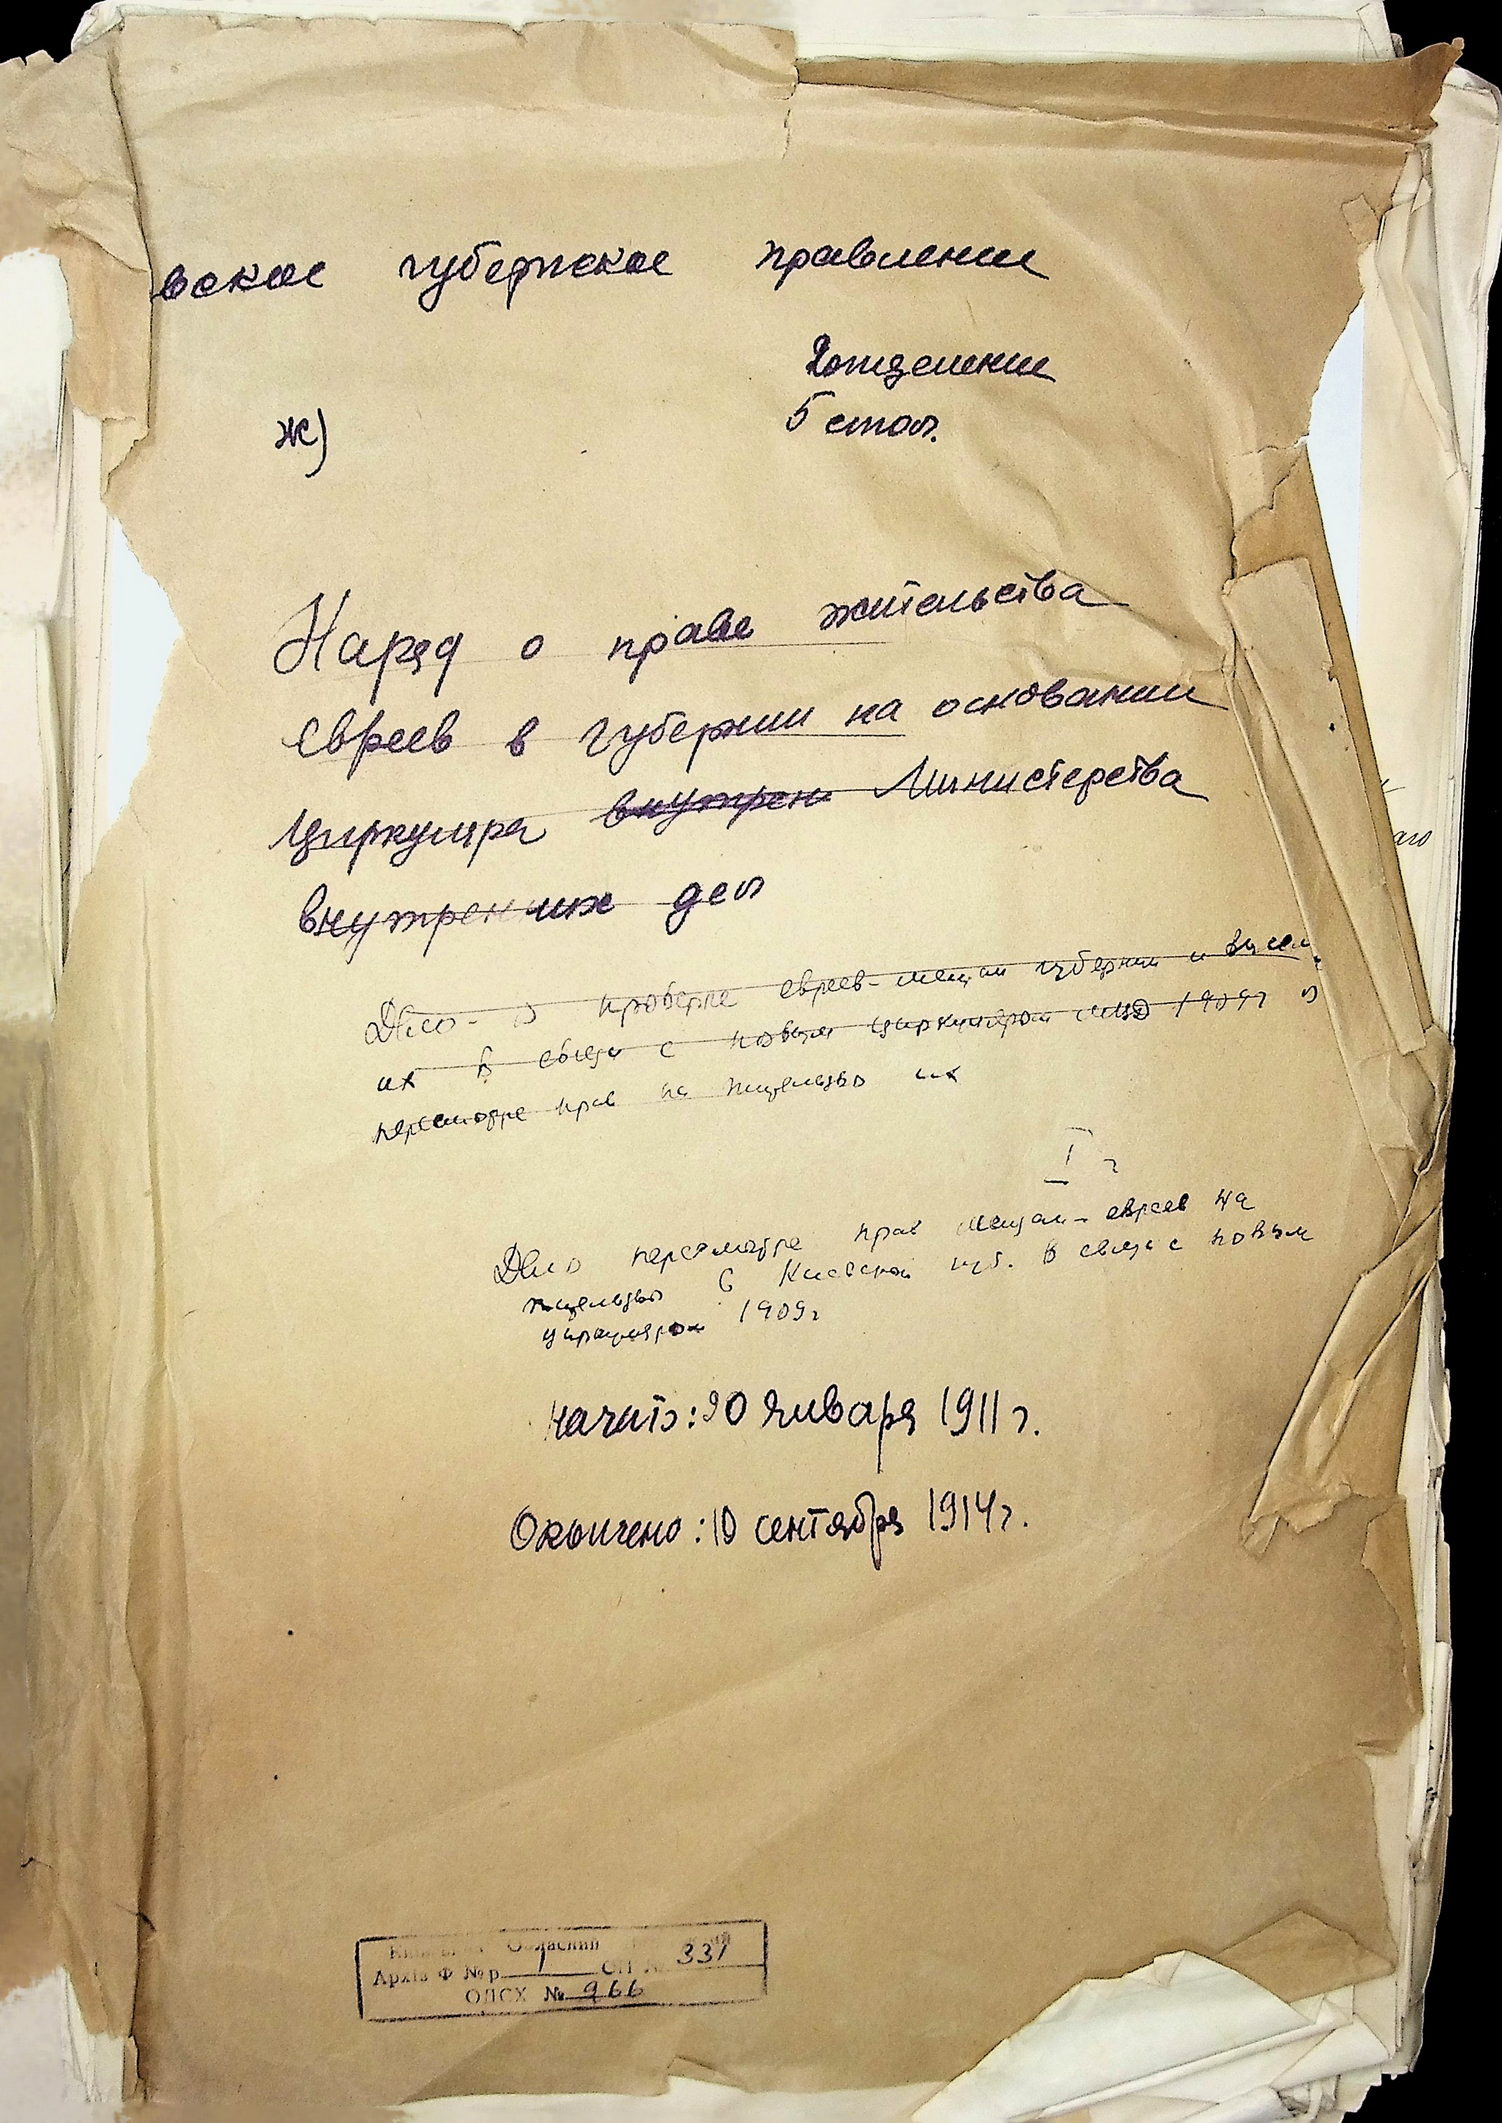 вское губернское правление
2 отделение
ж)
5 стол.
Наряд о праве жительства
евреев в губернии на основании
циркуляра внутрен Министерства
внутренних дел
Дело о проверке евреев-мещан губернии и высел.
их в связи с новым циркуляром МВД 1909 г о
пересмотре прав на жительство их
I г
Дело пересмотре прав мещан-евреев на
жительство в Киевской губ. в связи с новым
циркуляром 1909 г
Начато: 20 января 1911 г.
Окончено: 10 сентября 1914 г.
Обласний
Архів Ф №р 1 ОП № 331
ОДСХ № 966
аго